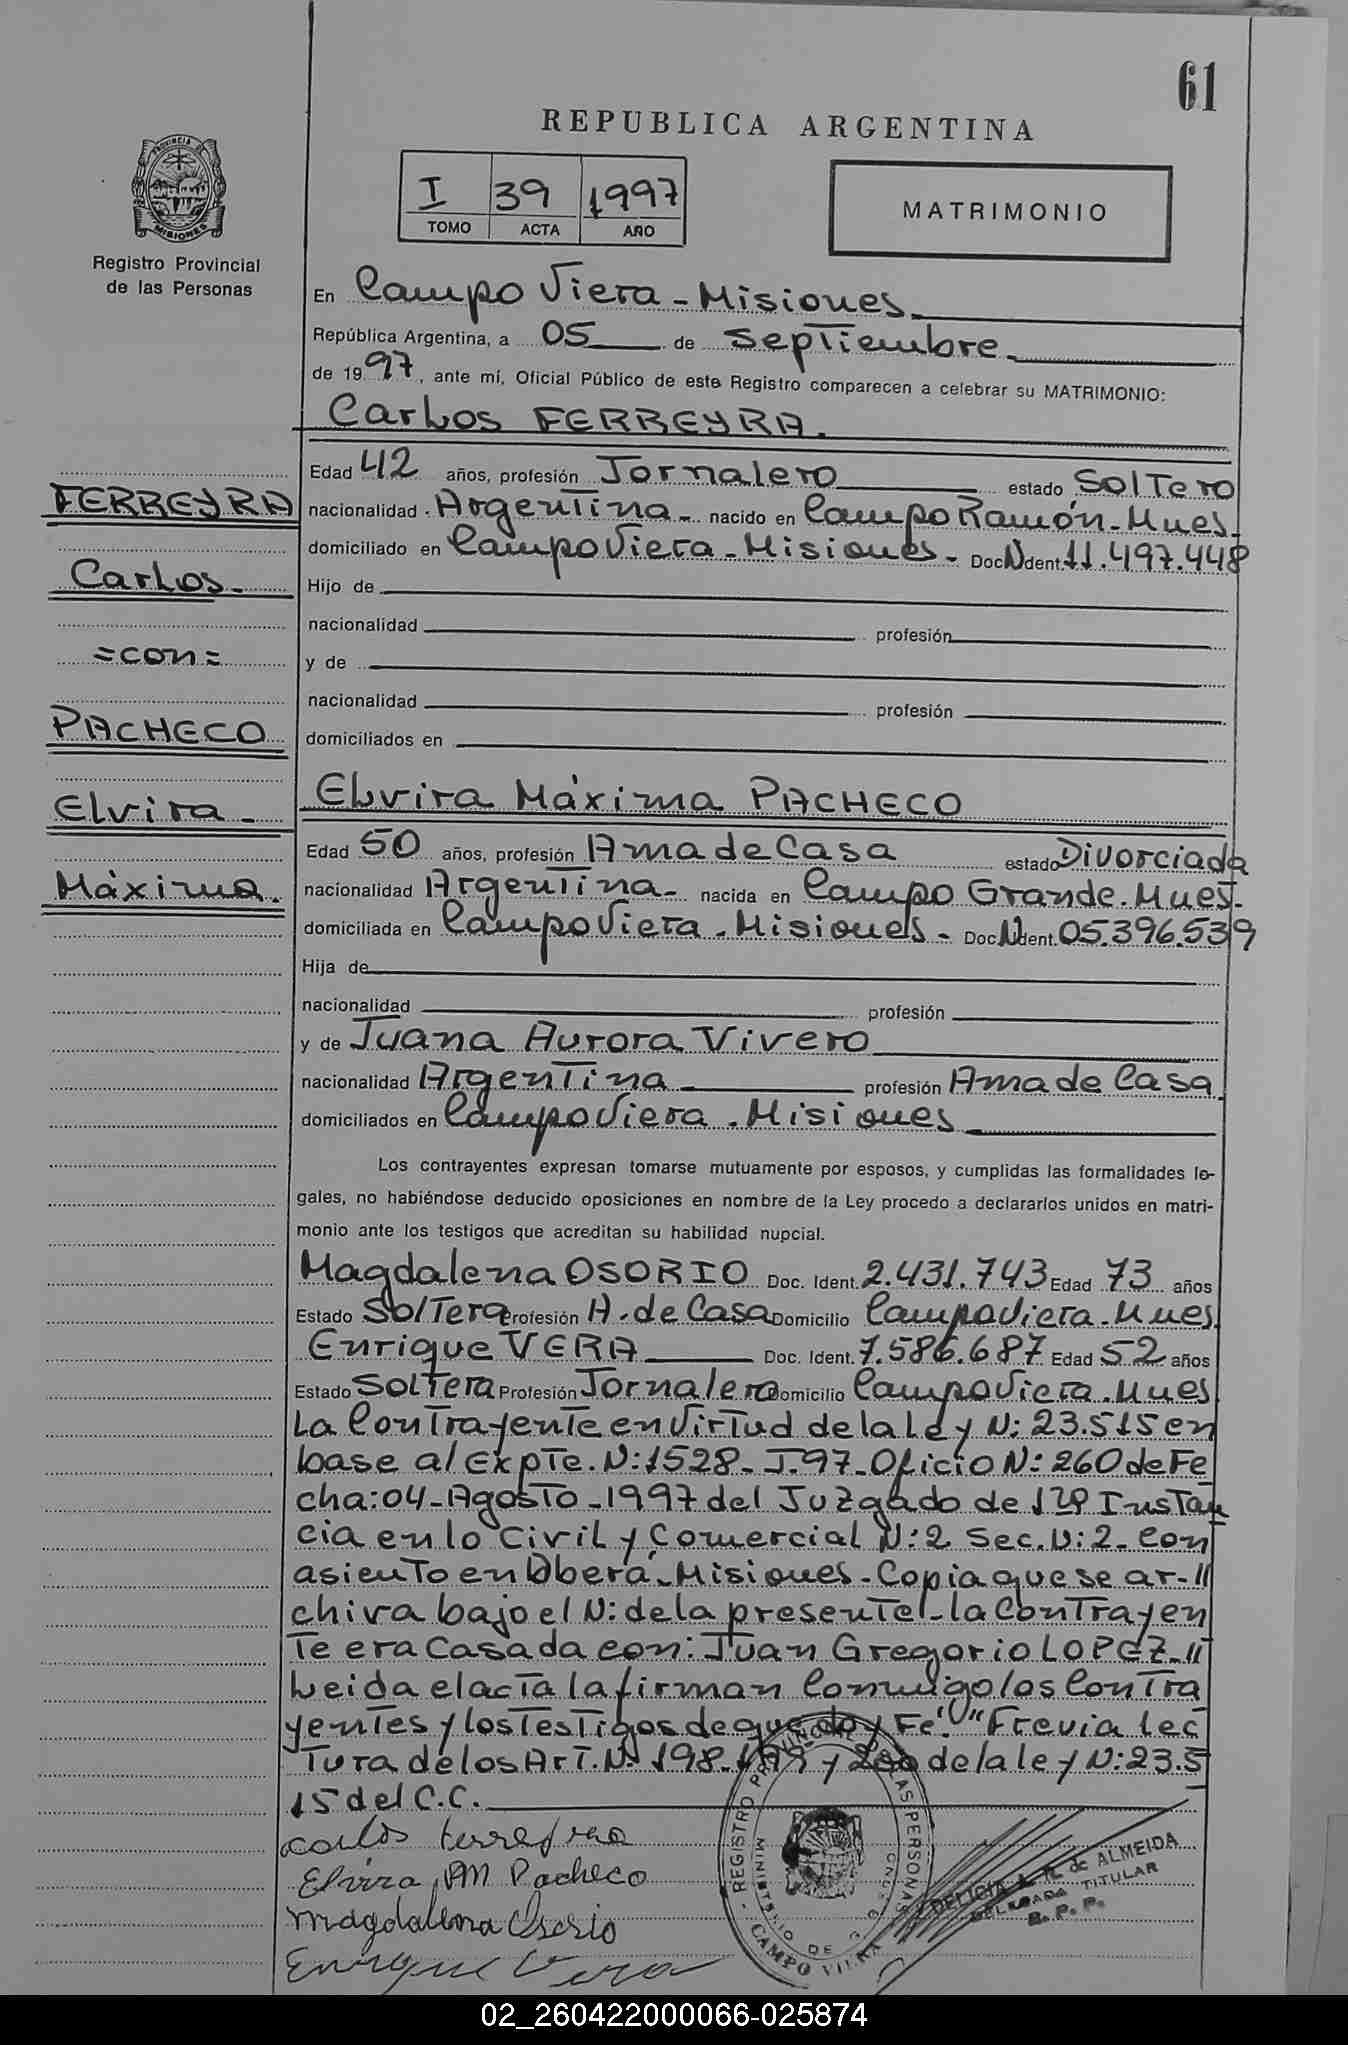 61
REPUBLICA ARGENTINA
I 39 1997
TOMO ACTA AÑO
MATRIMONIO
PROVINCIA DE
MISIONES
Registro Provincial
de las Personas
En Campo Viera - Misiones
República Argentina, a 05 de septiembre
de 1997, ante mí, Oficial Público de este Registro comparecen a celebrar su MATRIMONIO:
Carlos FERREYRA.
Edad 42 años, profesión Jornalero estado SolTero
nacionalidad Argentina - nacido en Campo Ramón - Mnes -
domiciliado en Campo Viera - Misiones - Doc N Ident. 11.497.448
Hijo de
nacionalidad profesión
y de
nacionalidad profesión
domiciliados en
Elvira Máxima PACHECO
Edad 50 años, profesión Ama de Casa estado Divorciada
nacionalidad Argentina - nacida en Campo Grande. Mnes -
domiciliada en Campo Viera - Misiones - Doc N Ident. 05.396.539
Hija de
nacionalidad profesión
y de Juana Aurora Vivero
nacionalidad Argentina profesión Ama de Casa
domiciliados en Campo Viera - Misiones
FERREYRA
Carlos -
=con=
PACHECO
Elvira -
Máxima.
Los contrayentes expresan tomarse mutuamente por esposos, y cumplidas las formalidades le-
gales, no habiéndose deducido oposiciones en nombre de la Ley procedo a declararlos unidos en matri-
monio ante los testigos que acreditan su habilidad nupcial.
Magdalena OSORIO Doc. Ident. 2.431.743 Edad 73 años
Estado SolTera Profesión A. de Casa Domicilio Campo Viera - Mnes
Enrique VERA Doc. Ident. 7.586.687 Edad 52 años
Estado SolTera Profesión Jornalero Domicilio Campo Viera - Mnes
La Contrayente en Virtud de la Ley N: 23.515 en
base al Expte. N: 1528 - J. 97 - Oficio N: 260 de Fe
cha: 04 - Agosto - 1997 del Juzgado de 1ra Instan
cia en lo Civil y Comercial N: 2 Sec. N: 2 - con
asiento en Oberá - Misiones - Copia que se ar - //
chiva bajo el N: de la presente - la Contrayen
te era Casada con: Juan Gregorio LOPEZ - //
Leida el acta la firman Conmigo los Contra
yentes y los Testigos de que doy Fé "Previa lec
tura de los Art. N: 198 - 199 y 200 de la ley N: 23.5
15 del C.C.
Carlos Ferreyra
Elvira M Pacheco
Magdalena Osorio
Enrique Vera
REGISTRO PROVINCIAL DE LAS PERSONAS
MINISTERIO DE G
CAMPO VIERA
DELICIA de ALMEIDA
DELEGADA TITULAR
R. P. P.
02_260422000066-025874